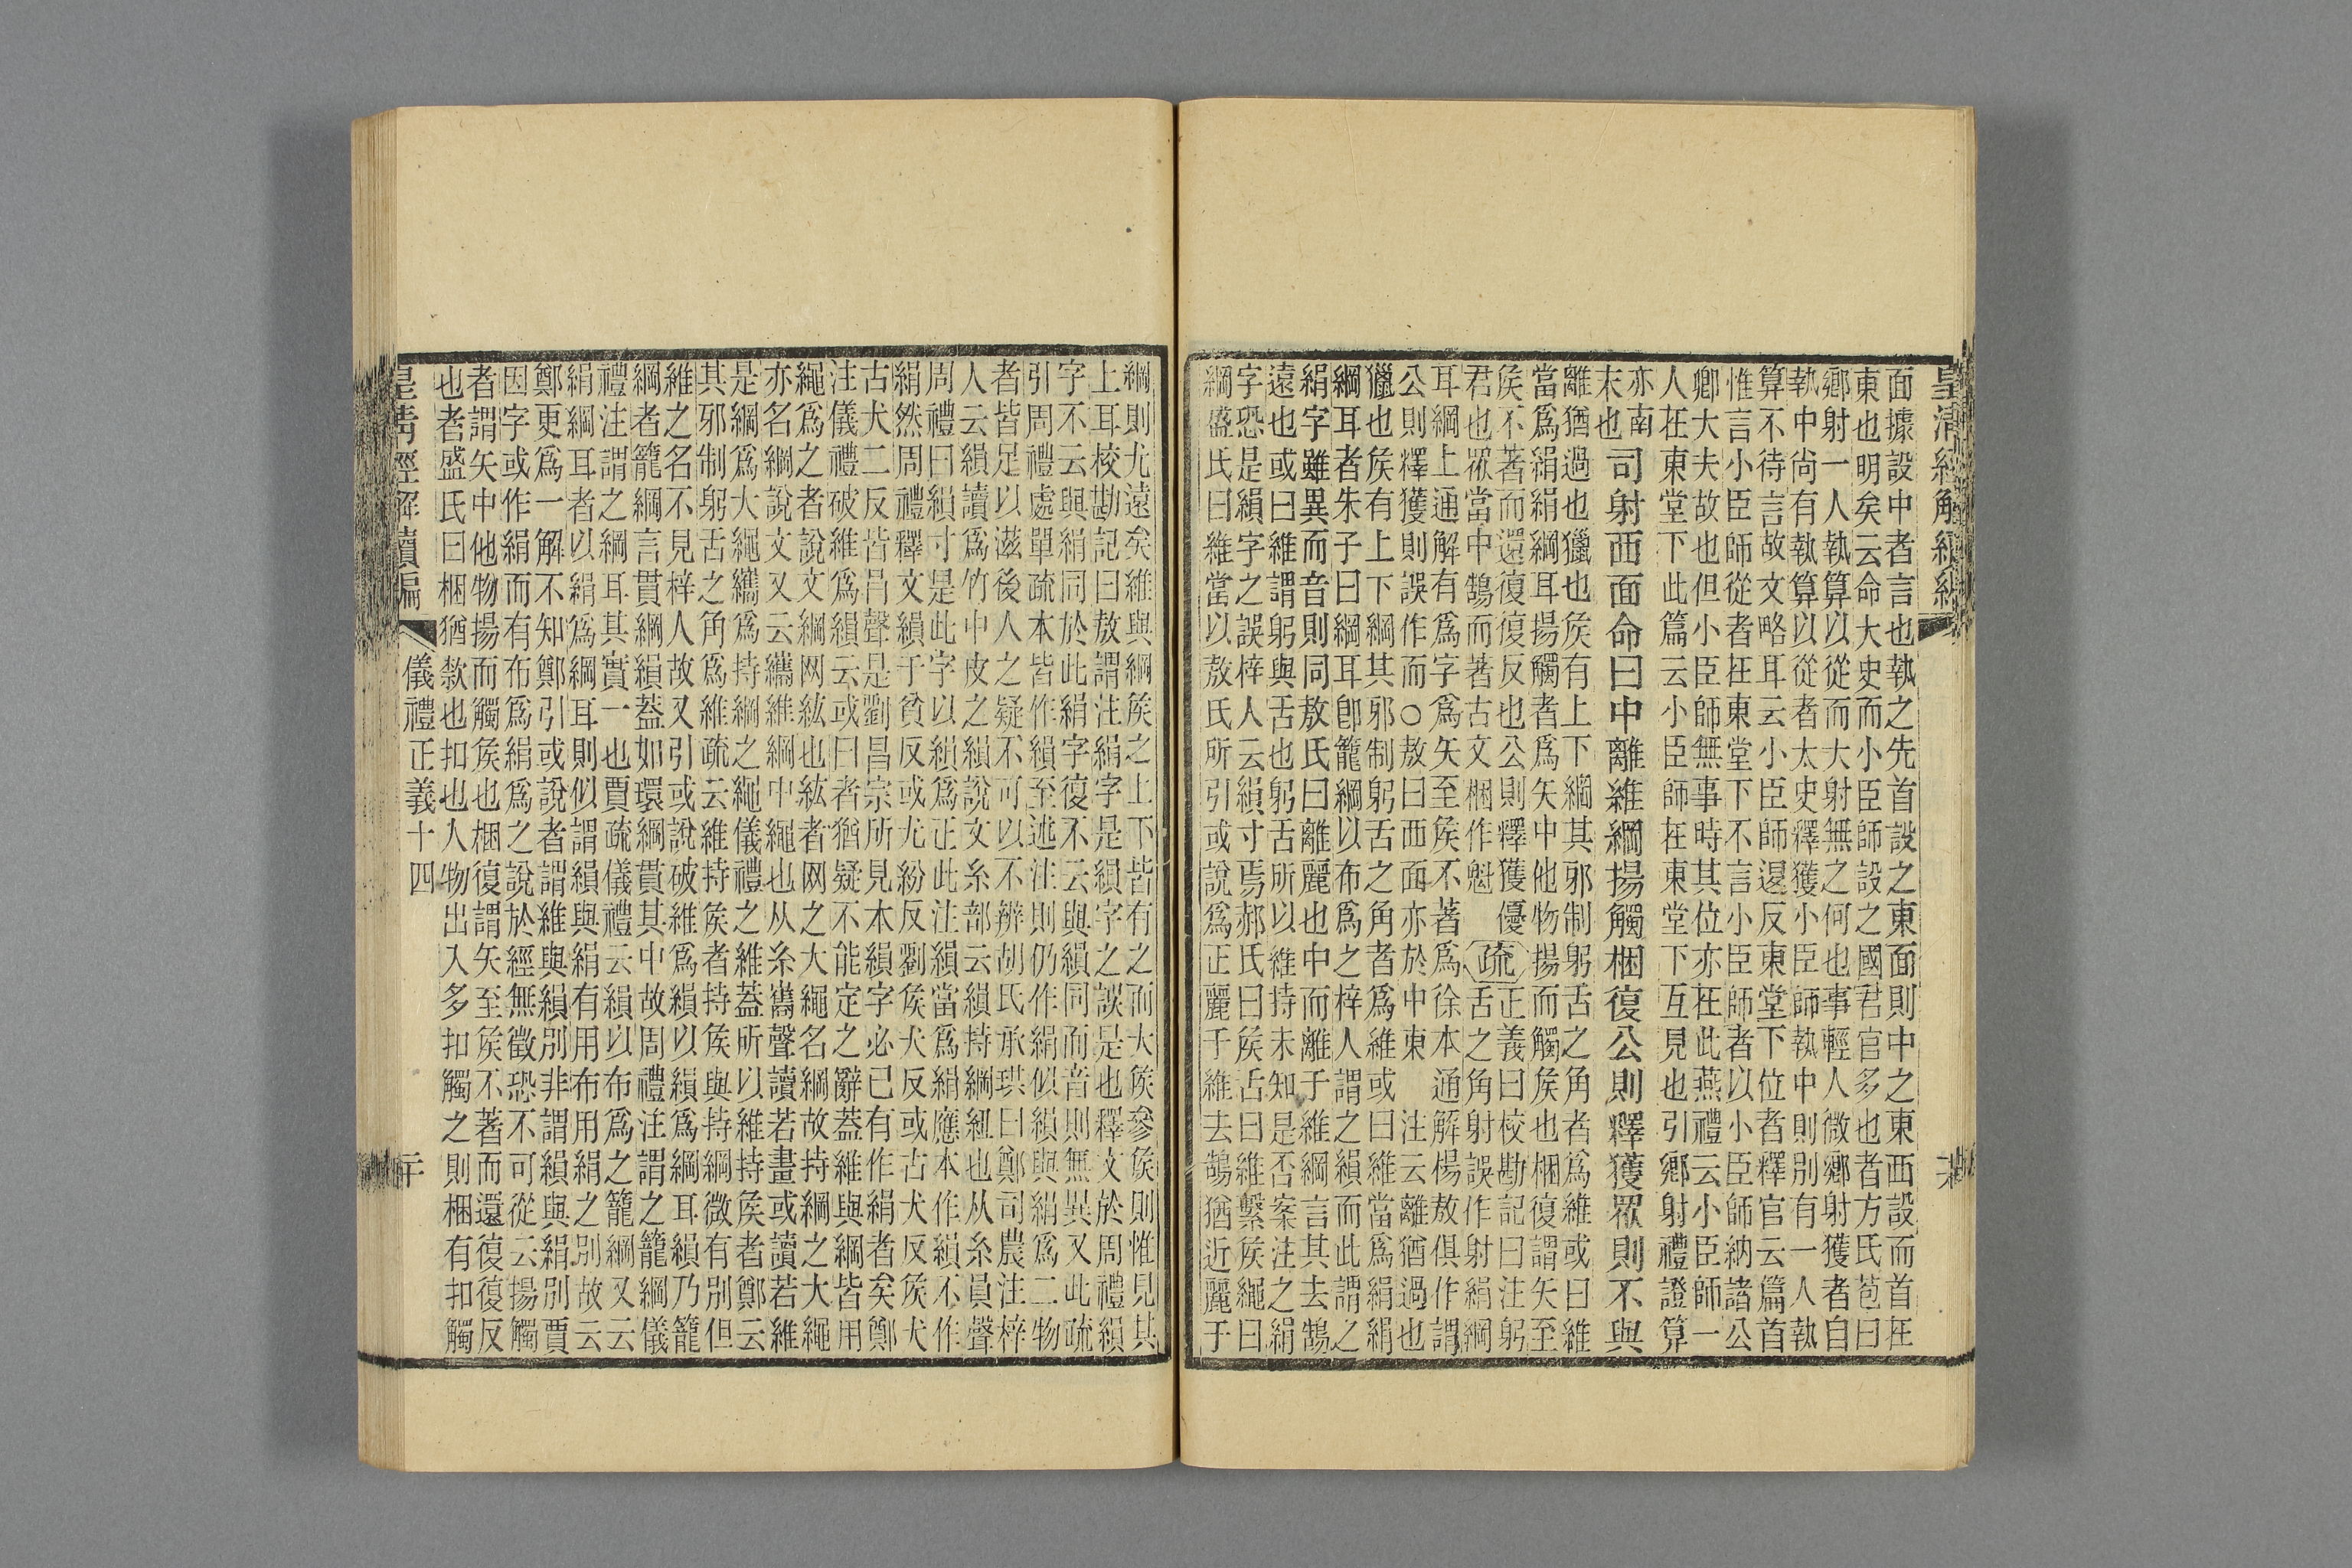 皇清經解續編
面據設中者言也執之先首設之東面則中之東西設而首在
東也明矣云命大史而小臣師設之國君官多也者方氏苞曰
鄉射一人執算以從而大射無之何也事輕人微鄉射獲者自
執中尚有執算以從者太史釋獲小臣師執中則別有一人執
算不待言故文略耳云小臣師退反東堂下位者釋官云篇首
惟言小臣師從者在東堂下不言小臣師者以小臣師納諸公
卿大夫故也但小臣師無事時其位亦在此燕禮云小臣師一
人在東堂下此篇云小臣師在東堂下互見也引鄉射禮證算
亦南
末也
司射西面命曰中離維綱揚觸梱復公則釋獲眾則不與
離猶過也獵也矦有上下綱其邪制躬舌之角者為維或曰維
當為絹絹綱耳揚觸者為矢中他物揚而觸矦也梱復謂矢至
矦不著而還復復反也公則釋獲優
君也眾當中鵠而著古文梱作魁
疏
正義曰校勘記曰注躬
舌之角射誤作射絹綱
耳綱上通解有為字為矢至矦不著為徐本通解楊敖俱作謂
公則釋獲則誤作而○敖曰西面亦於中東 注云離猶過也
獵也矦有上下綱其邪制躬舌之角者為維或曰維當為絹絹
綱耳者朱子曰綱耳卽籠綱以布為之梓人謂之縜而此謂之
絹字雖異而音則同敖氏曰離麗也中而離于維綱言其去鵠
遠也或曰維謂躬與舌也躬舌所以維持未知是否案注之絹
字恐是縜字之誤梓人云縜寸焉郝氏曰矦舌曰維繫矦繩曰
綱盛氏曰維當以敖氏所引或說為正麗于維去鵠猶近麗于
綱則尤遠矣維與綱矦之上下皆有之而大矦參矦則惟見其
上耳校勘記曰敖謂注絹字是縜字之誤是也釋文於周禮縜
字不云與絹同於此絹字復不云與縜同而音則無異又此疏
引周禮處單疏本皆作縜至述注則仍作絹似縜與絹為二物
者皆足以滋後人之疑不可以不辨胡氏承珙曰鄭司農注梓
人云縜讀為竹中皮之縜說文糸部云縜持綱紐也从糸員聲
周禮曰縜寸是此字以縜為正此注縜當為絹應本作縜不作
絹然周禮釋文縜于貧反或尤紛反劉矦犬反或古犬反矦犬
古犬二反皆昌聲是劉昌宗所見本縜字必已有作絹者矣鄭
注儀禮破維為縜云或曰者猶疑不能定之辭蓋維與綱皆用
繩為之者說文綱网紘也紘者网之大繩名綱故持綱之大繩
亦名綱說文又云纗維綱中繩也从糸巂聲讀若畫或讀若維
是綱為大繩纗為持綱之繩儀禮之維蓋所以維持矦者鄭云
其邪制躬舌之角為維疏云維持矦者持矦與持綱微有別但
維之名不見梓人故又引或說破維為縜以縜為綱耳縜乃籠
綱者籠綱言貫綱縜蓋如環綱貫其中故周禮注謂之籠綱儀
禮注謂之綱耳其實一也賈疏儀禮云縜以布為之籠綱又云
絹綱耳者以絹為綱耳則似謂縜與絹有用布用絹之別故云
鄭更為一解不知鄭引或說者謂維與縜別非謂縜與絹別賈
因字或作絹而有布為絹為之說於經無徵恐不可從云揚觸
者謂矢中他物揚而觸矦也梱復謂矢至矦不著而還復復反
也者盛氏曰梱猶欸也扣也人物出入多扣觸之則梱有扣觸
皇清經解續編 儀禮正義十四